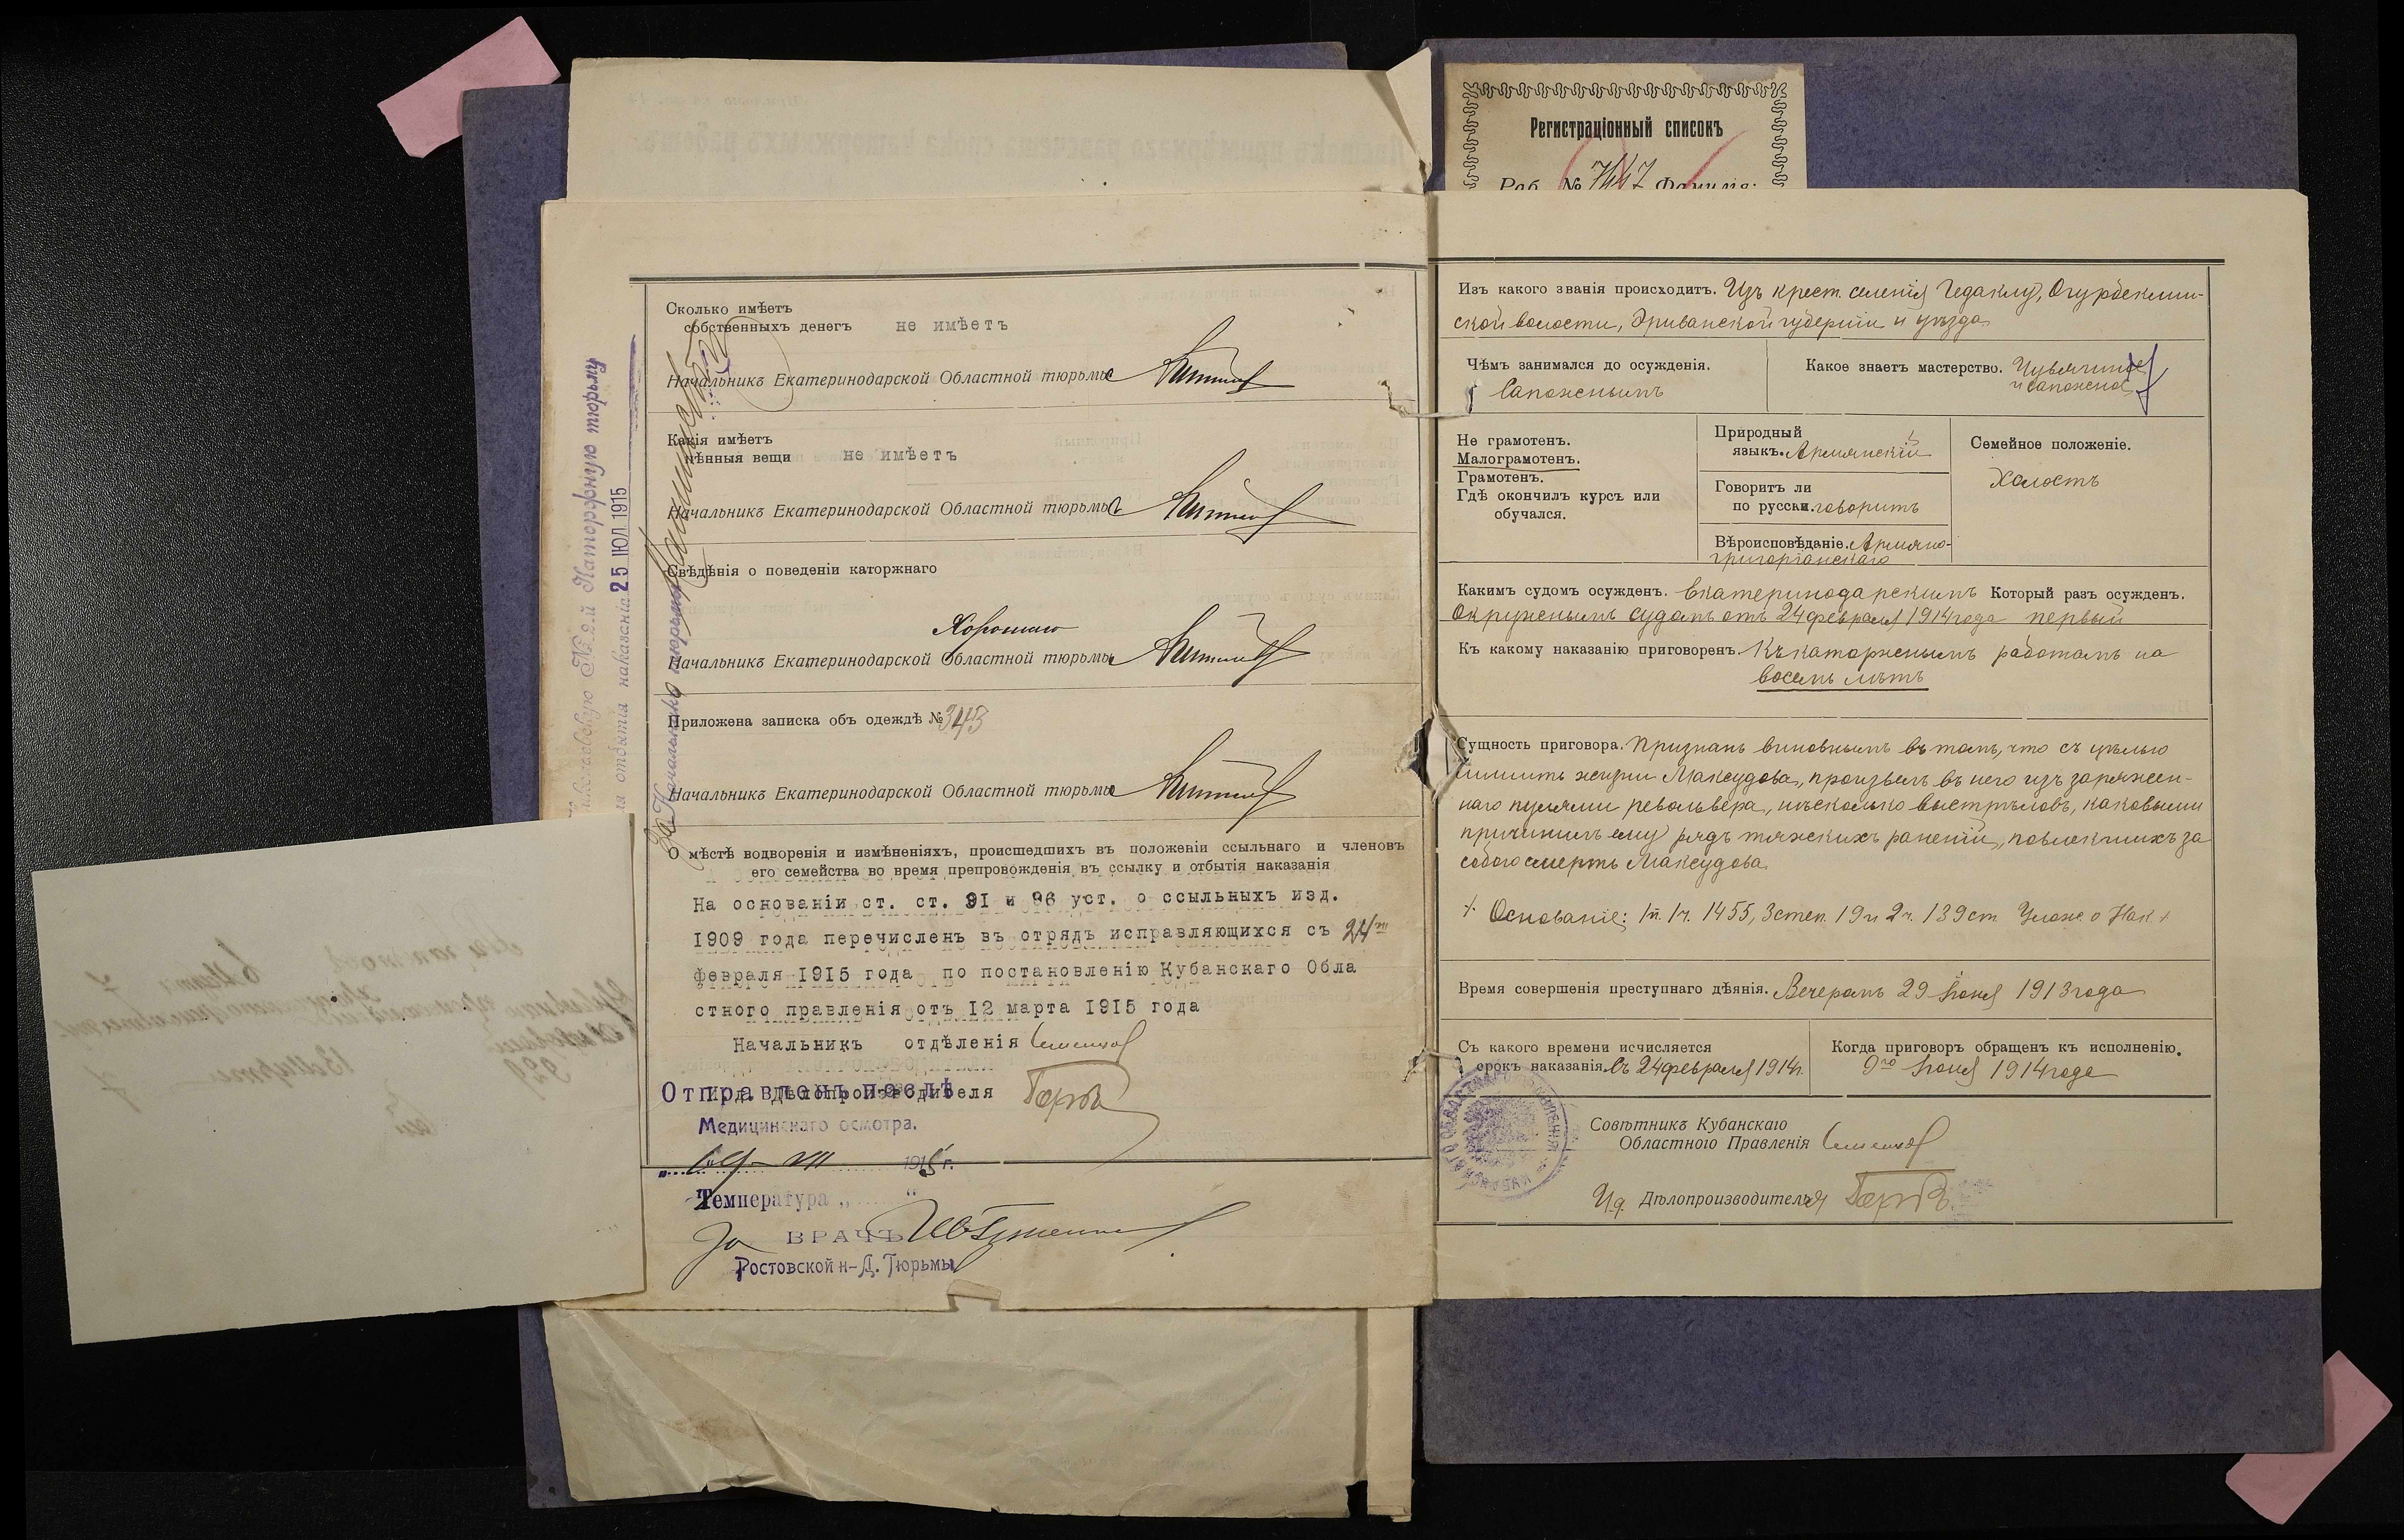 Регистраціонный списокъ
Раб. № 7447 Фамилія:
Сколько имѣетъ
собственныхъ денегъ не имѣетъ
Начальникъ Екатеринодарской Областной тюрьмы
Какія имѣетъ
цѣнныя вещи не имѣетъ
Начальникъ Екатеринодарской Областной тюрьмы
Свѣдѣнія о поведеніи каторжнаго
Хорошаго
Начальникъ Екатеринодарской Областной тюрьмы
Приложена записка объ одеждѣ № 343
Начальникъ Екатеринодарской Областной тюрьмы
О мѣстѣ водворенія и измѣненіяхъ, происшедшихъ въ положеніи ссыльнаго и членовъ
его семейства во время препровожденія въ ссылку и отбытія наказанія
На основаніи ст. ст. 91 и 96 уст. о ссыльныхъ изд.
1909 года перечисленъ въ отрядъ исправляющихся съ 24го
февраля 1915 года по постановленію Кубанскаго Обла
стного правленія отъ 12 марта 1915 года
Начальникъ отдѣленія
И.д. Дѣлопроизводителя
Отправленъ послѣ
Медицинскаго осмотра.
VII 1915 г.
Температура „ “
За ВРАЧЪ
Ростовской н-Д. Тюрьмы
Николаевскую № 2й Каторжную тюрьму
для отбытія наказанія 25 ІЮЛ 1915
За Начальника тюрьмы
Изъ какого званія происходитъ. Изъ крест. селенія Гедаклу, Огурбеклин-
ской волости, Эриванской губерніи и уѣзда
Чѣмъ занимался до осужденія.
Сапожнымъ
Какое знаетъ мастерство. Чувячное
и сапожное
Не грамотенъ.
Малограмотенъ.
Грамотенъ.
Гдѣ окончилъ курсъ или
обучался.
Природный
языкъ. Армянскій
Говоритъ ли
по русски. говоритъ
Вѣроисповѣданіе. Армяно-
григоріанскаго
Семейное положеніе.
Холостъ
Какимъ судомъ осужденъ. Екатеринодарскимъ Который разъ осужденъ.
Окружнымъ судомъ отъ 24 февраля 1914 года первый
Къ какому наказанію приговоренъ. Къ каторжнымъ работамъ на
восемь лѣтъ
Сущность приговора. Признанъ виновнымъ въ томъ, что съ цѣлью
лишить жизни Максудова, произвелъ въ него изъ заряжен-
наго пулями револьвера, нѣсколько выстрѣловъ, каковыми
причинилъ ему рядъ тяжскихъ раненій, повлекшихъ за
собою смерть Максудова.
Основаніе: 1 п. 1 ч. 1455, 3 степ. 19 и 2 ч. 139 ст Улож. о Нак.
Время совершенія преступнаго дѣянія. Вечеромъ 29 Іюня 1913 года
Съ какого времени исчисляется
срокъ наказанія. Съ 24 февраля 1914 г.
Когда приговоръ обращенъ къ исполненію.
9го Іюня 1914 года
Совѣтникъ Кубанскаго
Областного Правленія
И.д. Дѣлопроизводителя